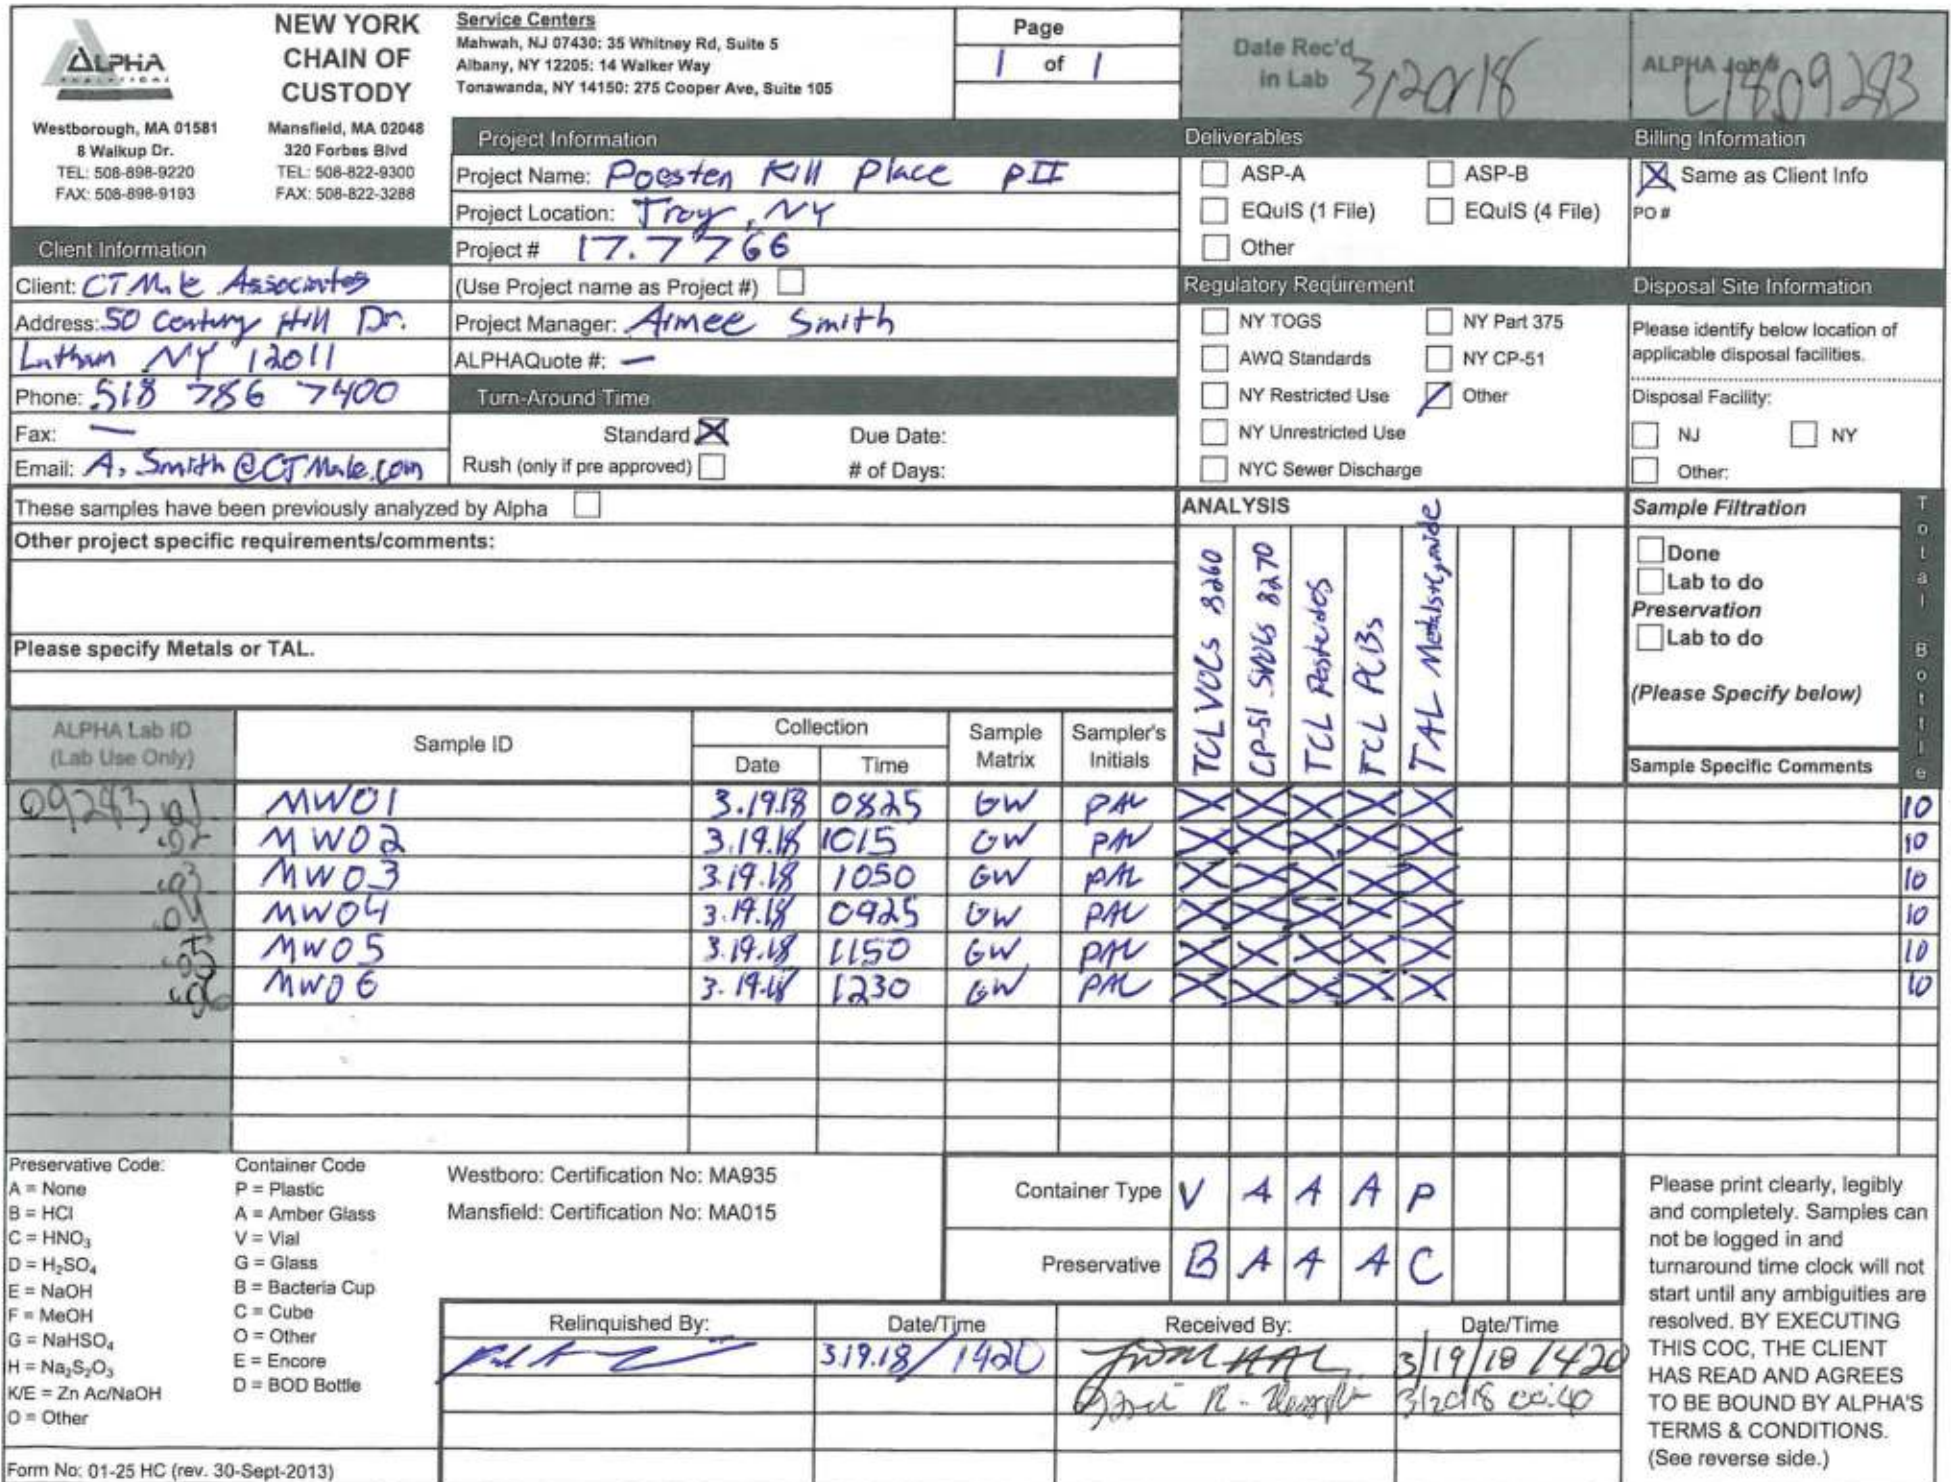 ALPHA
ANALYTICAL
Westborough, MA 01581
8 Walkup Dr.
TEL: 508-898-9220
FAX: 508-898-9193
NEW YORK
CHAIN OF
CUSTODY
Mansfield, MA 02048
320 Forbes Blvd
TEL: 508-822-9300
FAX: 508-822-3288
Service Centers
Mahwah, NJ 07430: 35 Whitney Rd, Suite 5
Albany, NY 12205: 14 Walker Way
Tonawanda, NY 14150: 275 Cooper Ave, Suite 105
Page
1 of 1
Date Rec'd
in Lab 3/20/18
ALPHA Job #
L1809283
Client Information
Client: CT Male Associates
Address: 50 Century Hill Dr.
Latham NY 12011
Phone: 518 786 7400
Fax: —
Email: A. Smith @CTMale.com
Project Information
Project Name: Poesten Kill Place PII
Project Location: Troy, NY
Project # 17.7766
(Use Project name as Project #)
Project Manager: Aimee Smith
ALPHAQuote #: —
Turn-Around Time
Standard X Due Date:
Rush (only if pre approved) # of Days:
Deliverables
ASP-A ASP-B
EQuIS (1 File) EQuIS (4 File)
Other
Regulatory Requirement
NY TOGS NY Part 375
AWQ Standards NY CP-51
NY Restricted Use / Other
NY Unrestricted Use
NYC Sewer Discharge
Billing Information
X Same as Client Info
PO #
Disposal Site Information
Please identify below location of
applicable disposal facilities.
Disposal Facility:
NJ NY
Other:
These samples have been previously analyzed by Alpha
Other project specific requirements/comments:
Please specify Metals or TAL.
ANALYSIS
TCL VOCs 8260
CP-51 SVOCs 8270
TCL Pesticides
TCL PCBs
TAL Metals+Cyanide
Sample Filtration
Done
Lab to do
Preservation
Lab to do
(Please Specify below)
Total Bottle
ALPHA Lab ID
(Lab Use Only)
Sample ID
Collection
Date Time
Sample
Matrix
Sampler's
Initials
Sample Specific Comments
09283 01 MW01 3.19.18 0825 GW PAL X X X X X 10
02 MW02 3.19.18 1015 GW PAL X X X X X 10
03 MW03 3.19.18 1050 GW PAL X X X X X 10
04 MW04 3.19.18 0925 GW PAL X X X X X 10
05 MW05 3.19.18 1150 GW PAL X X X X X 10
06 MW06 3.19.18 1230 GW PAL X X X X X 10
Preservative Code:
A = None
B = HCl
C = HNO₃
D = H₂SO₄
E = NaOH
F = MeOH
G = NaHSO₄
H = Na₂S₂O₃
K/E = Zn Ac/NaOH
O = Other
Container Code
P = Plastic
A = Amber Glass
V = Vial
G = Glass
B = Bacteria Cup
C = Cube
O = Other
E = Encore
D = BOD Bottle
Westboro: Certification No: MA935
Mansfield: Certification No: MA015
Container Type V A A A P
Preservative B A A A C
Relinquished By: Date/Time Received By: Date/Time
3.19.18/1420 3/19/18 1420
3/20/18 00:40
Please print clearly, legibly
and completely. Samples can
not be logged in and
turnaround time clock will not
start until any ambiguities are
resolved. BY EXECUTING
THIS COC, THE CLIENT
HAS READ AND AGREES
TO BE BOUND BY ALPHA'S
TERMS & CONDITIONS.
(See reverse side.)
Form No: 01-25 HC (rev. 30-Sept-2013)